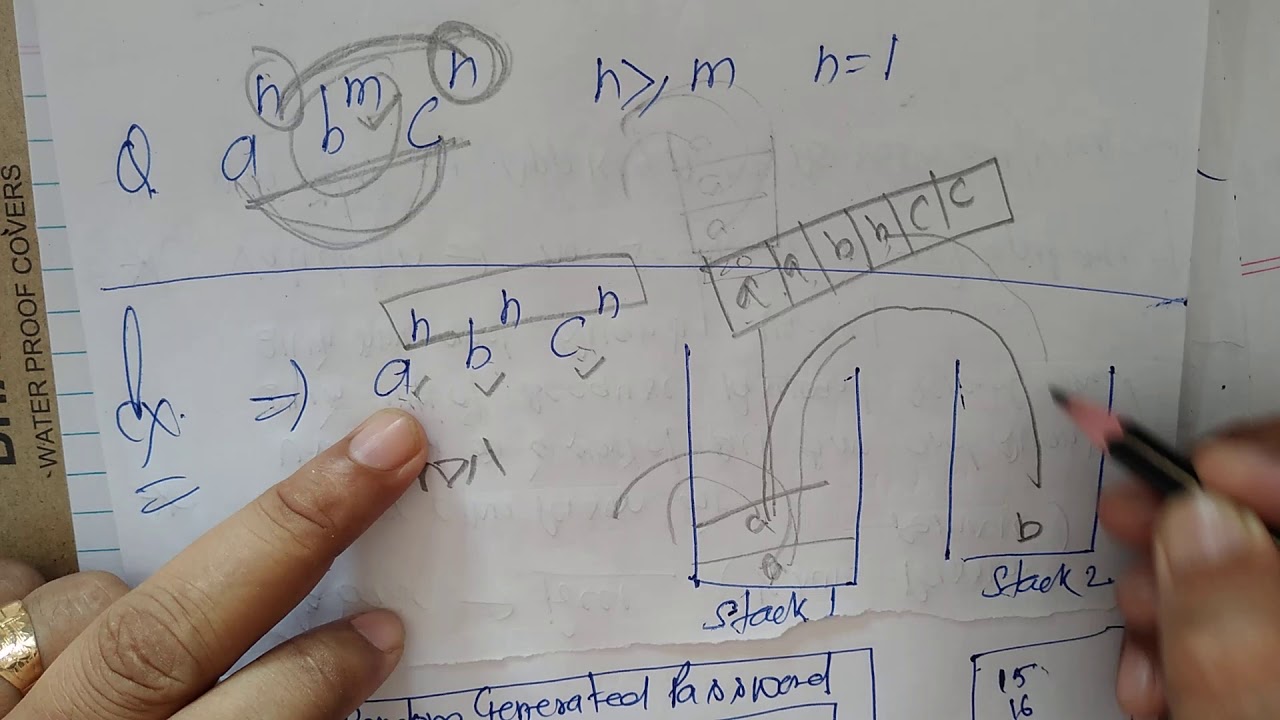 Q a^n b^m c^n n ≥ m n = 1
a
a
a a b b c c
Ex. ⇒ a^n b^n c^n
a
a
b
Stack 1 Stack 2
WATER PROOF COVERS
Random Generated Password
15
16